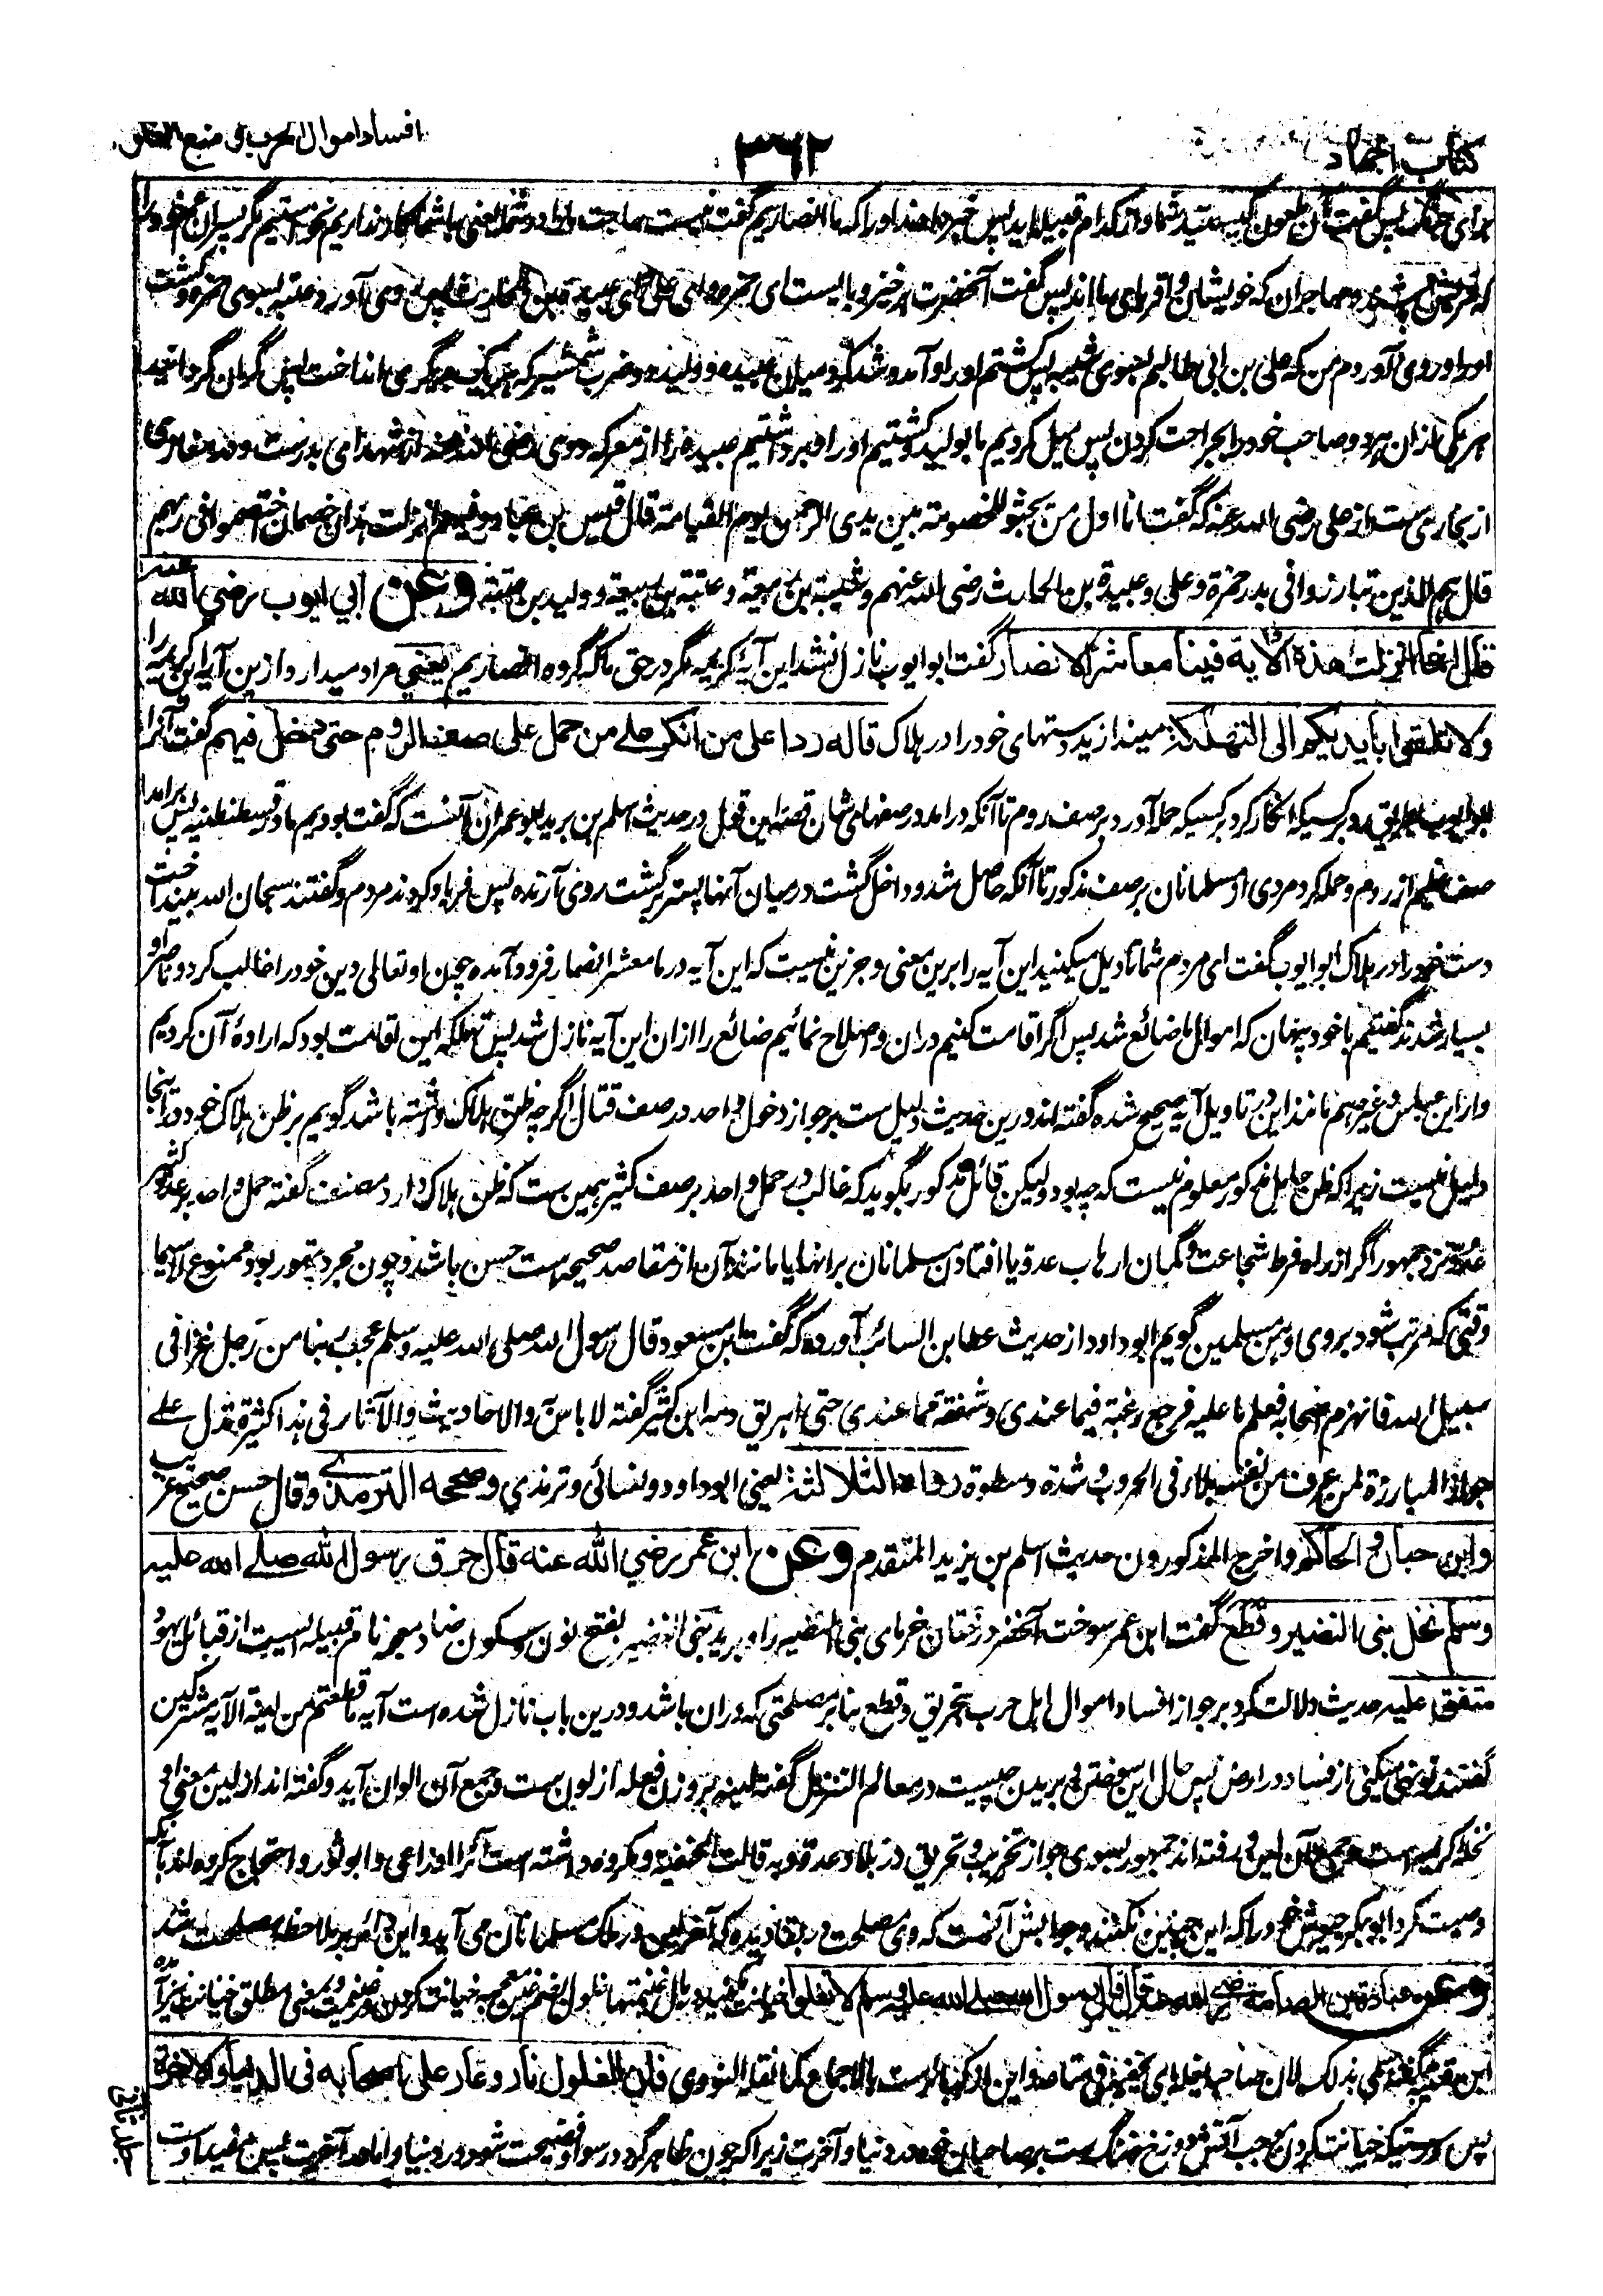 كتاب الجهاد
٣٦٢
افساد اموال الحرب و منع
برای جنگ پس گفت آن ملعون کیستید شما و از کدام قبیله اید پس خبر دادند او را که ما انصاریم گفت نیست ما را حاجت در شما یعنی با شما کار نداریم نخواستیم مگر پسران عم خود را
که قریش باشند و مهاجران که خویشان و اقربای ما اند پس گفت آنحضرت برخیز و بایست ای حمزه و ای علی و ای عبیدة بن الحارث پس روی آورد عتبه بسوی حمزه و کشت
او را و روی آوردم من که علی بن ابی طالبم بسوی شیبه پس کشتم او را و آمد و شد کرد میان عبیده و ولید دو ضرب شمشیر که هر یک بر دیگری انداخت پس گران گردانید
هر یکی از آن هر دو صاحب خود را بجراحت کردن پس میل کردیم ما بولید و کشتیم او را و برداشتیم عبیده را از معرکه و وی رضی الله عنه از شهدای بدرست و در مغازی
از بخاری ست از علی رضی الله عنه که گفت انا اول من یجثو للخصومة بین یدی الرحمن یوم القیامة قال قیس بن عباد و فیهم انزلت هذان خصمان اختصموا فی ربهم
قال هم الذین تبارزوا فی بدر حمزة و علی و عبیدة بن الحارث رضی الله عنهم و شیبة بن ربیعة و عتبة بن ربیعة و ولید بن عتبة وعن ابي ايوب رضي الله عنه
قال انما انزلت هذه الاية فينا معاشر الانصار گفت ابو ایوب نازل نشد این آیه کریمه مگر در حق ما که گروه انصاریم یعني مراد میدارد ازین آیه این کریمه را
ولا تلقوا بأيديكم الى التهلكة میندازید دستهای خود را در هلاک قاله ردا على من انكر على من حمل على صف الروم حتى دخل فيهم گفت و آنرا
ابو ایوب بطریق رد بر کسیکه انکار کرد بر کسیکه حمله آورد بر صف روم تا آنکه درآمد در صفهای شان قصه این قول در حدیث اسلم بن یزید ابو عمران آنست که گفت بودیم ما در قسطنطنیه پس برآمد
صف عظیم از روم و حمله کرد مردی از مسلمانان بر صف مذکور تا آنکه حاصل شد و داخل گشت در میان آنها پستر برگشت روی آرنده پس فریاد کردند مردم و گفتند سبحان الله بینداخت
دست خود را در هلاک ابو ایوب گفت ای مردم شما تاویل میکنید این آیه را برین معنی و جز این نیست که این آیه در ما معشر انصار فرود آمده چون او تعالی دین خود را غالب کرد و ناصر او
بسیار شدند گفتیم با خود پنهان که اموال ما ضائع شد پس اگر اقامت کنیم دران و اصلاح نمائیم ضائع را ازان این آیه نازل شد پس تهلکه این اقامت بود که ارادهٔ آن کردیم
و از ابن عباس و غیر هم مانند این در تاویل آیه صحیح شده گفته اند درین حدیث دلیل ست بر جواز دخول واحد در صف قتال اگرچه ظن هلاک داشته باشد گویم بر ظن هلاک خود در اینجا
دلیل نیست زیرا که ظن حامل مذکور معلوم نیست که چه بود و لیکن قائل مذکور بگوید که غالب در حمل واحد بر صف کثیر همین ست که ظن هلاک دارد مصنف گفته حمل واحد بر عدد کثیر
عدو نزد جمهور اگر از راه فرط شجاعت و گمان ارهاب عدو یا افتادن مسلمانان بر انها یا مانند آن از مقاصد صحیحه است حسن باشد و چون مجرد تهور بود ممنوع لا سیما
وقتی که مرتب شود بروی وهن مسلمین گویم ابو داود از حدیث عطا بن السائب آورده که گفت ابن مسعود قال رسول الله صلی الله علیه وسلم عجب ربنا من رجل غزا فی
سبیل الله فانهزم اصحابه فعلم ما علیه فرجع رغبة فیما عندی و شفقة مما عندی حتی اهریق دمه ابن کثیر گفته لا باس به والاحادیث والآثار فی هذا کثیرة تدل علی
جواز المبارزة لمن عرف من نفسه بلاء فی الحروب و شدة و سطوة رواه الثلاثة یعنی ابو داود و نسائی و ترمذي وصححه الترمذي وقال حسن صحيح غريب
وابن حبان والحاكم و اخرج المذکورون حدیث اسلم بن یزید المتقدم وعن ابن عمر رضي الله عنه قال حرق رسول الله صلى الله عليه
وسلم نخل بنى النضير وقطع گفت ابن عمر سوخت آنحضرت درختان خرمای بنی النضیر را و برید بنی النضیر بفتح نون و سکون ضاد معجمه نام قبیله ایست از قبائل یهود
متفق عليه حدیث دلالت کرد بر جواز افساد اموال اهل حرب بتحریق و قطع بنا بر مصلحتی که دران باشد و درین باب نازل شده است آیه ما قطعتم من لینة الآیه مشرکین
گفتند تو نهی میکنی از فساد در ارض پس حال این سوختن و بریدن چیست در معالم التنزیل گفته لینه بر وزن فعله از لون ست و جمع آن الوان آید و گفته اند از لین معنی او
نخله کریمه است و جمع آن لین و رفته اند جمهور بسوی جواز تخریب و تحریق در بلاد عدو و به قالت الحنفیة و مکروه داشته است آنرا اوزاعی و ابو ثور و احتجاج کرده اند بآنکه
وصیت کرد ابو بکر جیوش خود را که این چنین نکنند و جوابش آنست که وی مصلحت در بقا دیده که آخر این در ملک مسلمانان می آید و این دائر بر ملاحظه مصلحت باشد
وعن عبادة بن الصامت رضي الله عنه قال قال رسول الله صلى الله عليه وسلم لا تغلوا خیانت نکنید در مال غنیمتها غلول بضم غین معجمه خیانت کردن در غنیمت و بمعنی مطلق خیانت نیز آمده
ابن قتیبه گفته سمی بذلک لان صاحبه یغله ای یخفیه فی متاعه و این از کبائر ست بالاجماع کما نقله النووی فان الغلول نار وعار على اصحابه فى الدنيا والاخرة
پس بدرستیکه خیانت کردن موجب آتش دوزخ و ننگ ست بر صاحبان خود در دنیا و آخرت زیرا که چون ظاهر گردد رسوا و فضیحت شود در دنیا و اما در آخرت پس
جلد ثانی